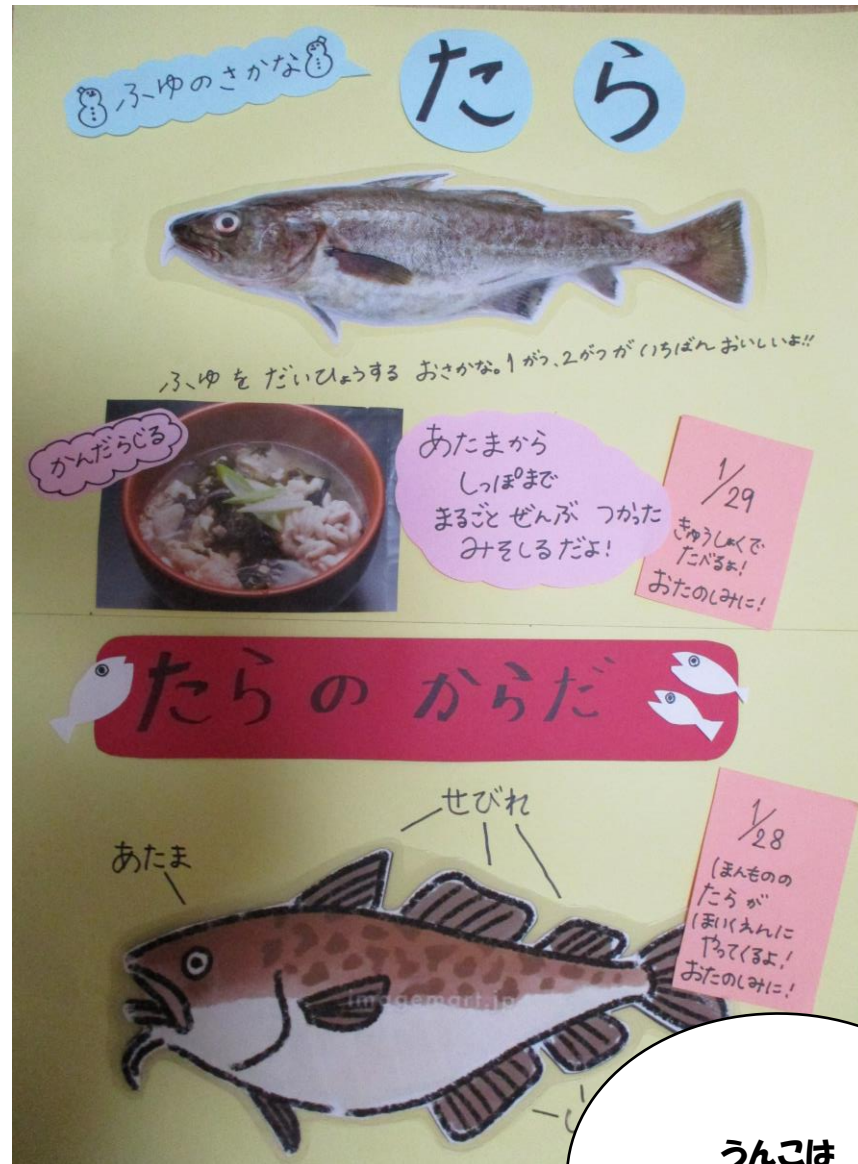 ふゆのさかな
たら
ふゆを だいひょうする おさかな。1がつ、2がつが いちばん おいしいよ!!
かんだらじる
あたまから
しっぽまで
まるごと ぜんぶ つかった
みそしるだよ!
1/29
きゅうしょくで
たべるよ!
おたのしみに!
たらの からだ
せびれ
あたま
1/28
ほんものの
たらが
ほいくえんに
やってくるよ!
おたのしみに!
imagemart.jp
うんこは